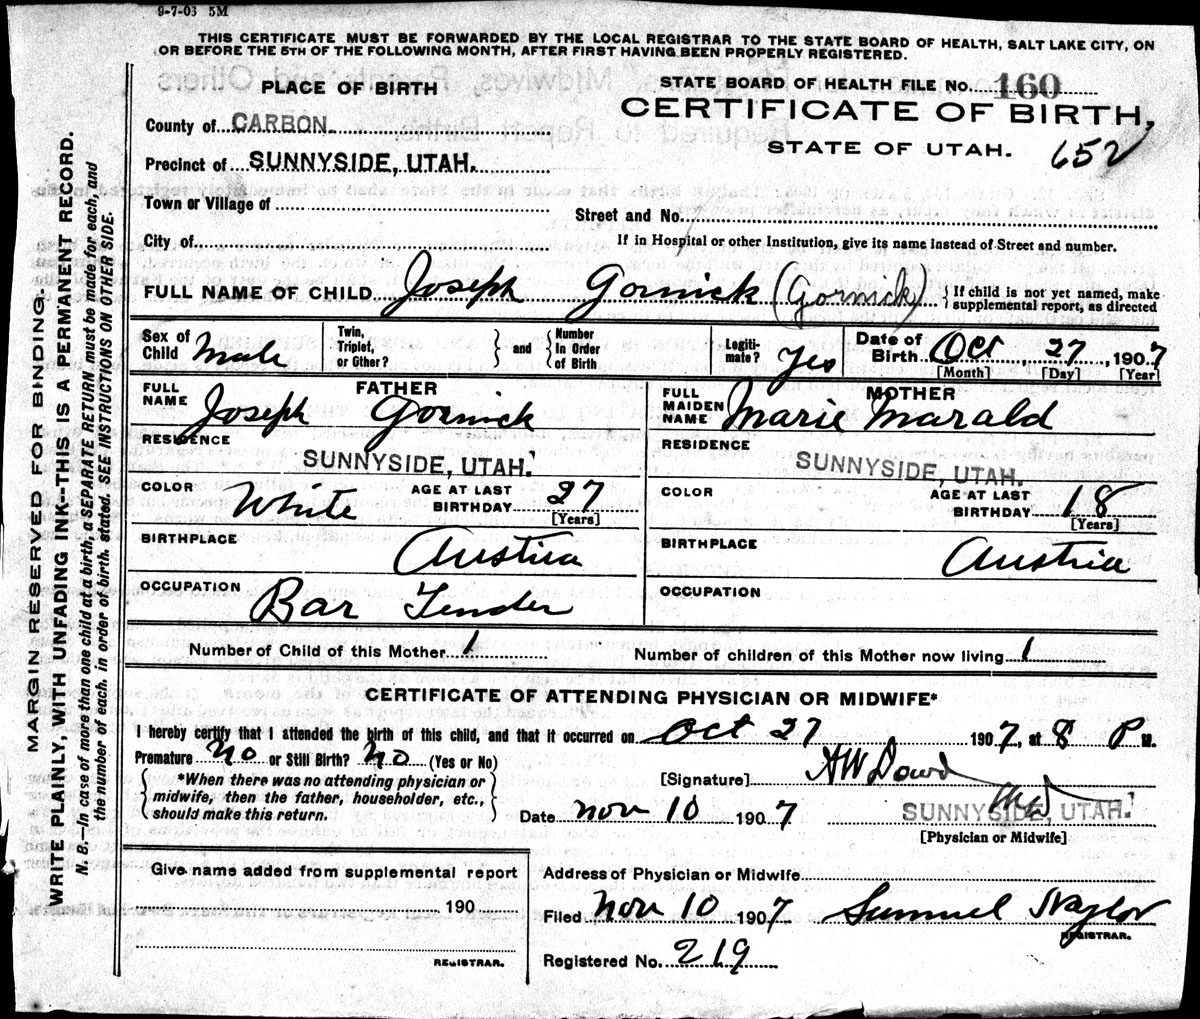 9-7-03 5M
THIS CERTIFICATE MUST BE FORWARDED BY THE LOCAL REGISTRAR TO THE STATE BOARD OF HEALTH, SALT LAKE CITY, ON
OR BEFORE THE 5TH OF THE FOLLOWING MONTH, AFTER FIRST HAVING BEEN PROPERLY REGISTERED.
MARGIN RESERVED FOR BINDING.
WRITE PLAINLY, WITH UNFADING INK--THIS IS A PERMANENT RECORD.
N. B.--In case of more than one child at a birth, a SEPARATE RETURN must be made for each, and
the number of each, in order of birth, stated. SEE INSTRUCTIONS ON OTHER SIDE.
PLACE OF BIRTH
STATE BOARD OF HEALTH FILE No. 160
CERTIFICATE OF BIRTH,
STATE OF UTAH. 652
County of CARBON.
Precinct of SUNNYSIDE, UTAH.
Town or Village of
Street and No.
City of
If in Hospital or other Institution, give its name instead of Street and number.
FULL NAME OF CHILD Joseph Gornick (Gornick) { If child is not yet named, make
supplemental report, as directed
Sex of Child Male
Twin, Triplet, or Other? } and { Number In Order of Birth
Legitimate? Yes
Date of Birth Oct 27, 1907
[Month] [Day] [Year]
FATHER
FULL NAME Joseph Gornick
MOTHER
FULL MAIDEN NAME Marie Marald
RESIDENCE SUNNYSIDE, UTAH.
RESIDENCE SUNNYSIDE, UTAH.
COLOR White AGE AT LAST BIRTHDAY 27 [Years]
COLOR AGE AT LAST BIRTHDAY 18 [Years]
BIRTHPLACE Austria
BIRTHPLACE Austria
OCCUPATION Bar Tender
OCCUPATION
Number of Child of this Mother 1
Number of children of this Mother now living 1
CERTIFICATE OF ATTENDING PHYSICIAN OR MIDWIFE*
I hereby certify that I attended the birth of this child, and that it occurred on Oct 27 1907, at 8 P M.
Premature No or Still Birth? No (Yes or No)
{ *When there was no attending physician or
midwife, then the father, householder, etc.,
should make this return. }
[Signature] A W Dowd
MD
Date Nov 10 1907 SUNNYSIDE, UTAH.
[Physician or Midwife]
Give name added from supplemental report
190
REGISTRAR.
Address of Physician or Midwife
Filed Nov 10 1907 Samuel Naylor
REGISTRAR.
Registered No. 219